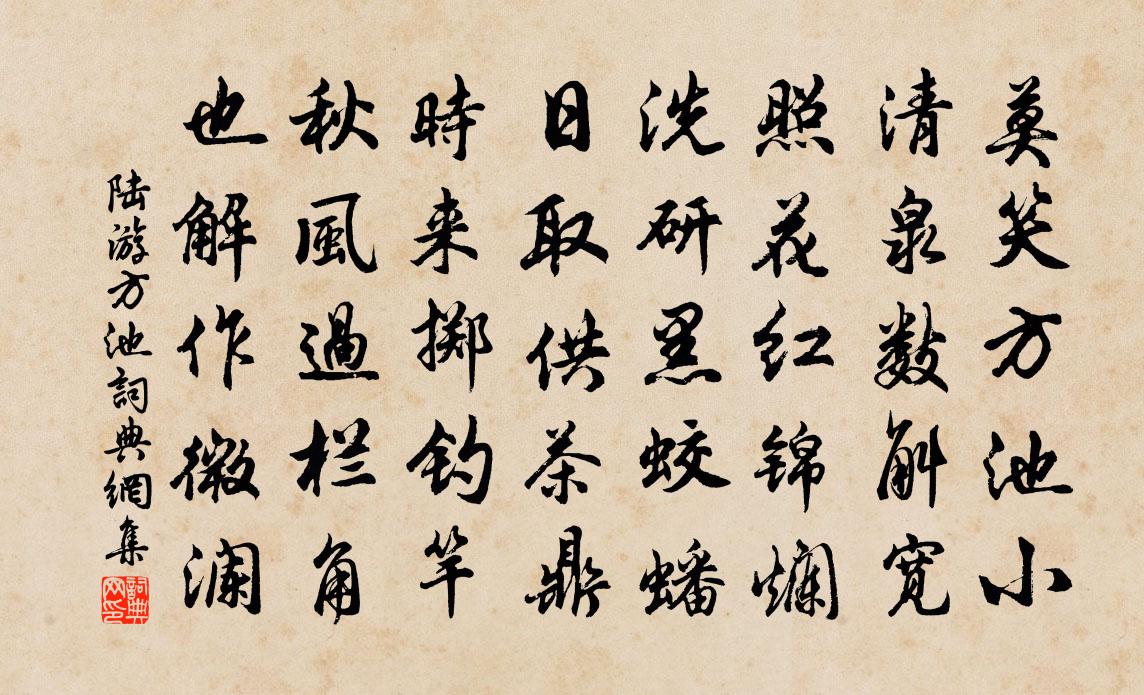 莫笑方池小
清泉数斛宽
照花红锦烂
洗研黑蛟蟠
日取供茶鼎
時来掷钓竿
秋風過栏角
也解作微澜
陆游方池詞典網集
詞典网印